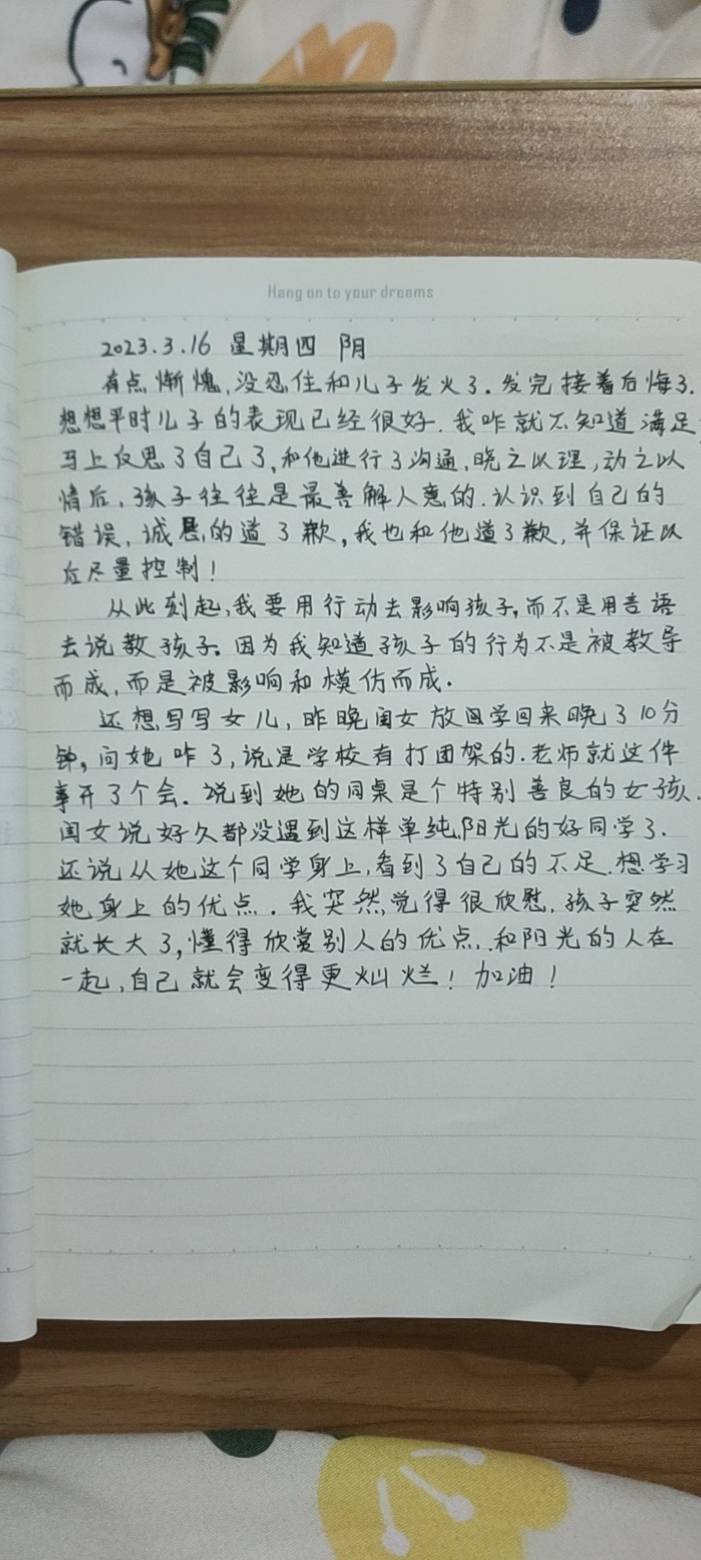 Hang on to your dreams
2023.3.16 星期四 阴
有点惭愧,没忍住和儿子发火了.发完接着后悔了.
想想平时儿子的表现已经很好.我咋就不知道满足
马上反思了自己了,和他进行了沟通,晓之以理,动之以
情后,孩子往往是最善解人意的.认识到自己的
错误,诚恳的道了歉,我也和他道了歉,并保证以
后尽量控制!
从此刻起,我要用行动去影响孩子,而不是用言语
去说教孩子。因为我知道孩子的行为不是被教导
而成,而是被影响和模仿而成.
还想写写女儿,昨晚闺女放学回来晚了10分
钟,问她咋了,说是学校有打团架的.老师就这件
事开了个会.说到她的同桌是个特别善良的女孩.
闺女说好久都没遇到这样单纯,阳光的好同学了.
还说从她这个同学身上,看到了自己的不足.想学习
她身上的优点.我突然觉得很欣慰,孩子突然
就长大了,懂得欣赏别人的优点,和阳光的人在
一起,自己就会变得更灿烂!加油!